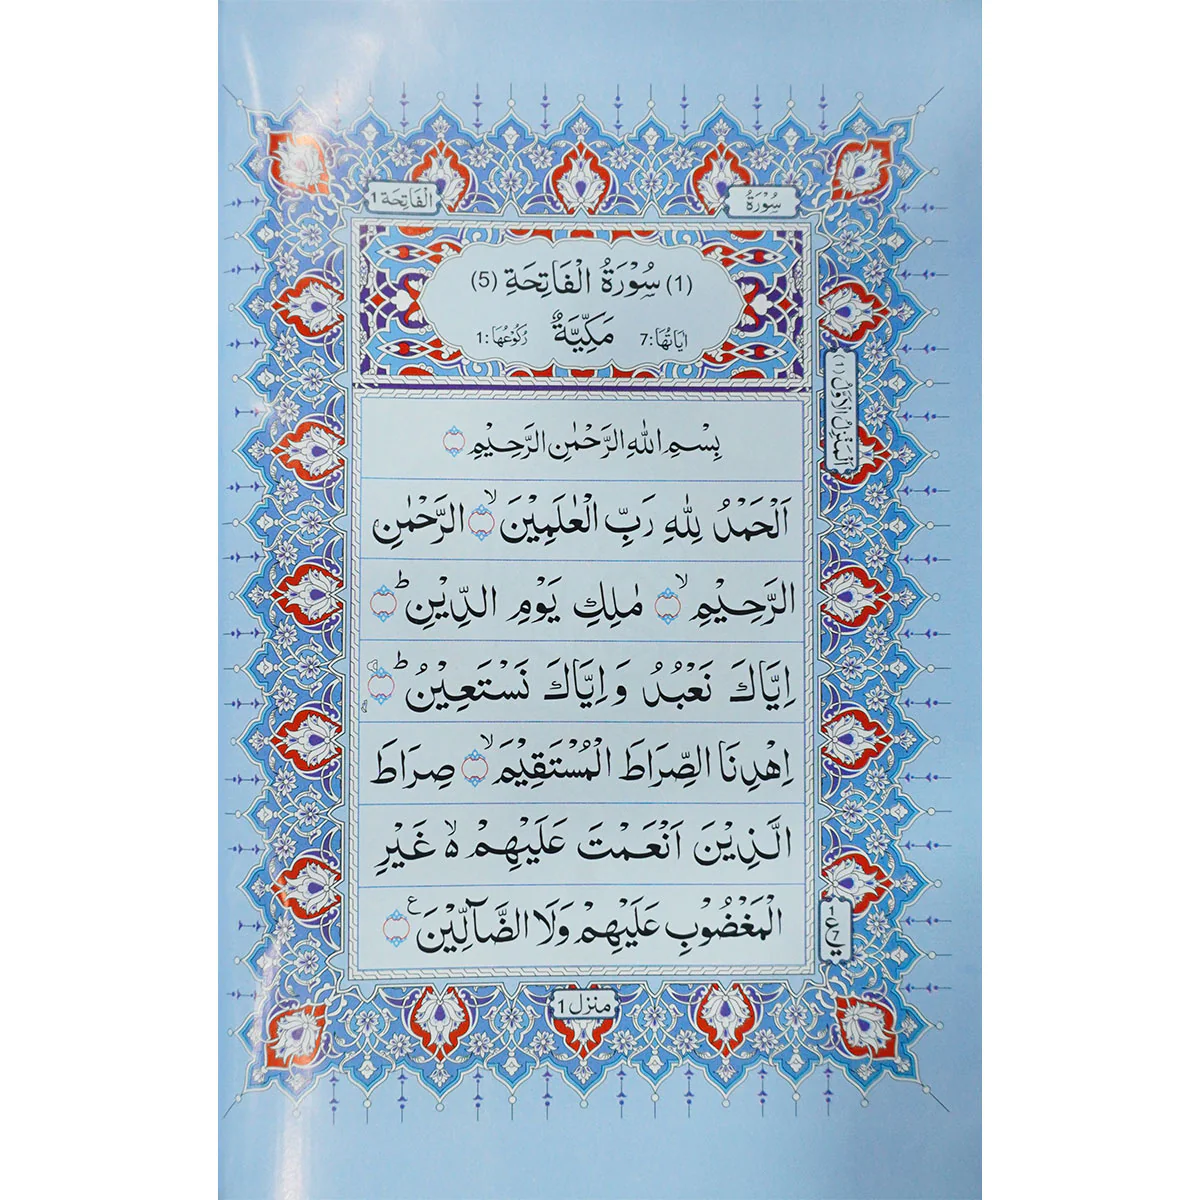 سُوْرَةُ
الْفَاتِحَة 1
(1) سُوْرَةُ الْفَاتِحَةِ (5)
اٰيَاتُهَا:7 مَكِّيَّةٌ رُكُوْعُهَا:1
اَلْمَنْزِلُ الْاَوَّلُ (1)
بِسْمِ اللّٰهِ الرَّحْمٰنِ الرَّحِيْمِ
اَلْحَمْدُ لِلّٰهِ رَبِّ الْعٰلَمِيْنَ ۙ الرَّحْمٰنِ
الرَّحِيْمِ ۙ مٰلِكِ يَوْمِ الدِّيْنِ ؕ
اِيَّاكَ نَعْبُدُ وَ اِيَّاكَ نَسْتَعِيْنُ ؕ
اِهْدِنَا الصِّرَاطَ الْمُسْتَقِيْمَ ۙ صِرَاطَ
الَّذِيْنَ اَنْعَمْتَ عَلَيْهِمْ ۙ۬ غَيْرِ
الْمَغْضُوْبِ عَلَيْهِمْ وَلَا الضَّآلِّيْنَ ع
1 ع 7
منزل 1